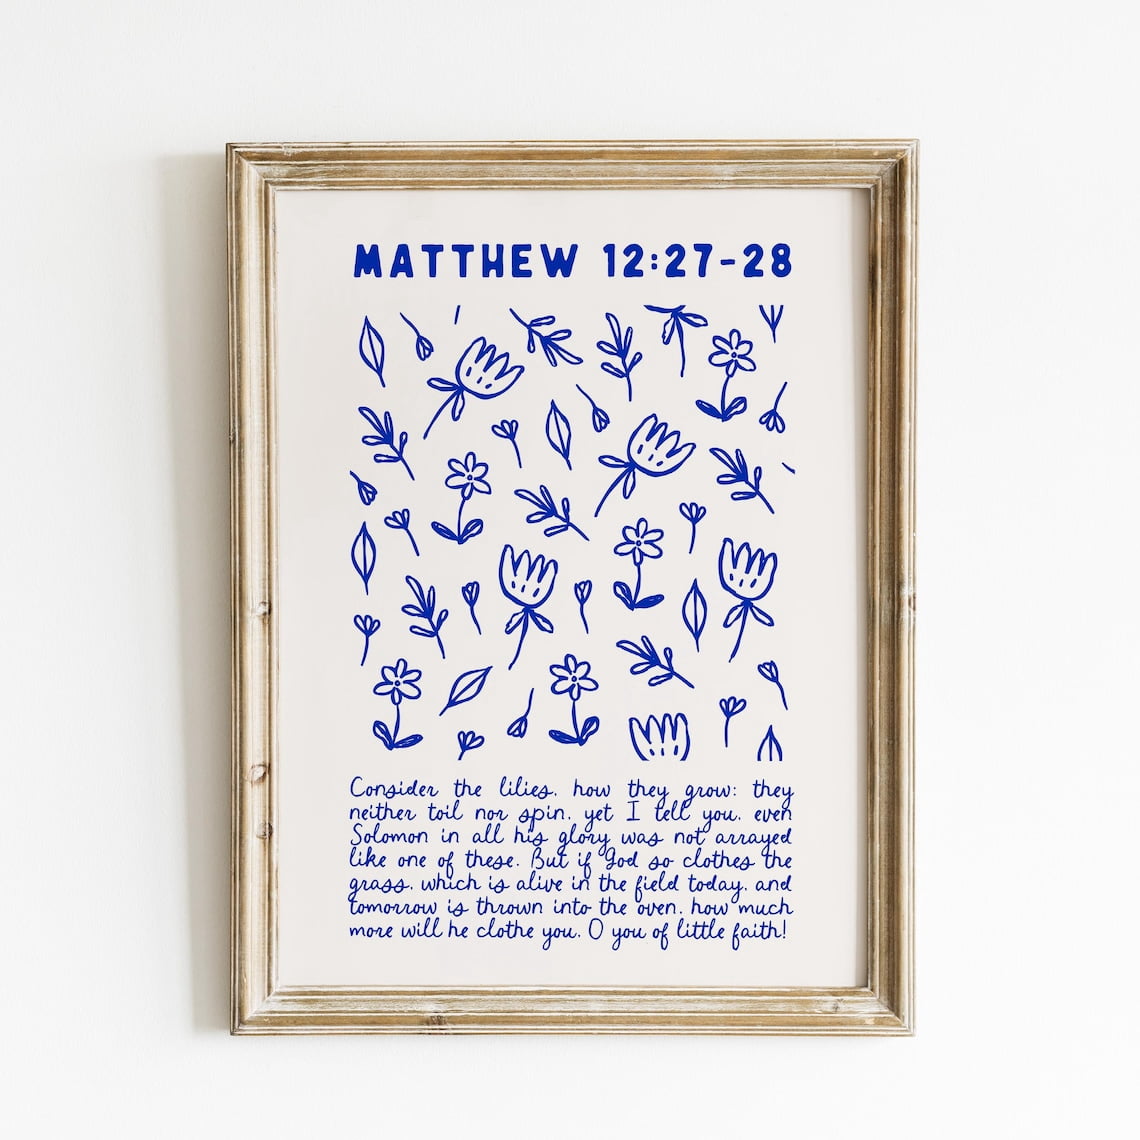 MATTHEW 12:27-28
Consider the lilies, how they grow: they
neither toil nor spin, yet I tell you, even
Solomon in all his glory was not arrayed
like one of these. But if God so clothes the
grass, which is alive in the field today, and
tomorrow is thrown into the oven, how much
more will he clothe you, O you of little faith!